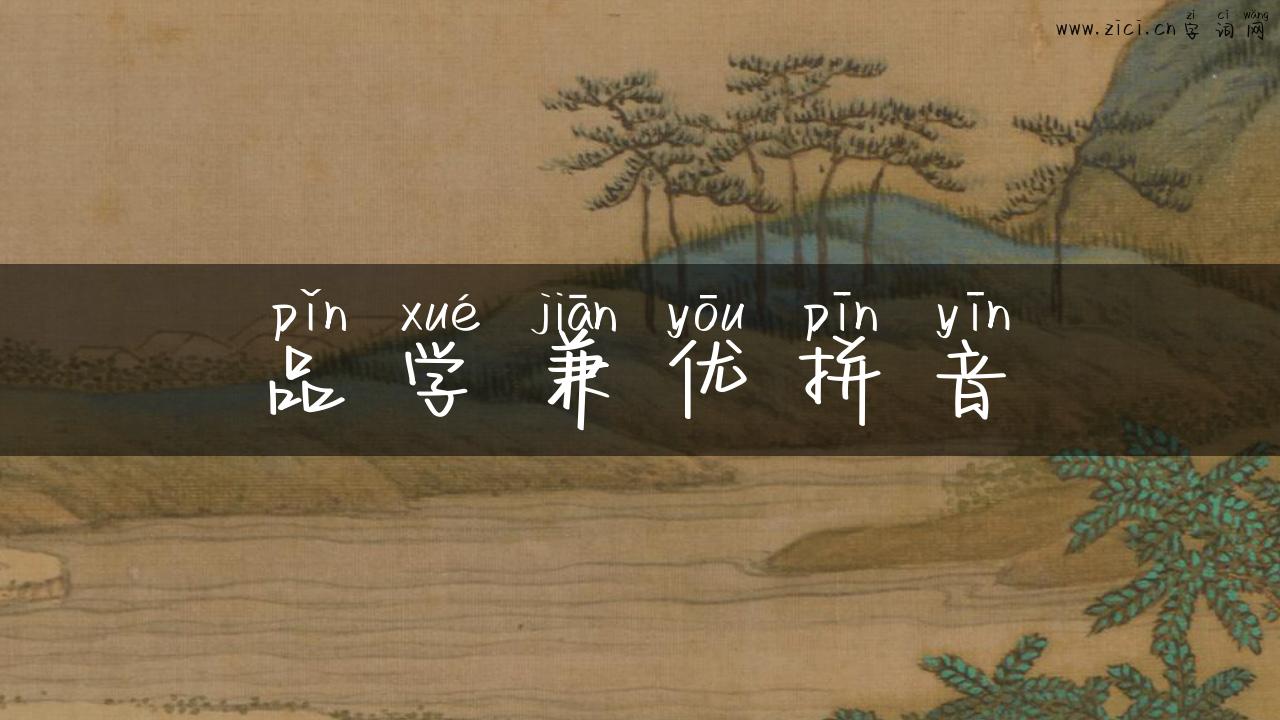 zì cí wǎng
www.zici.cn 字词网
pǐn xué jiān yōu pīn yīn
品学兼优拼音